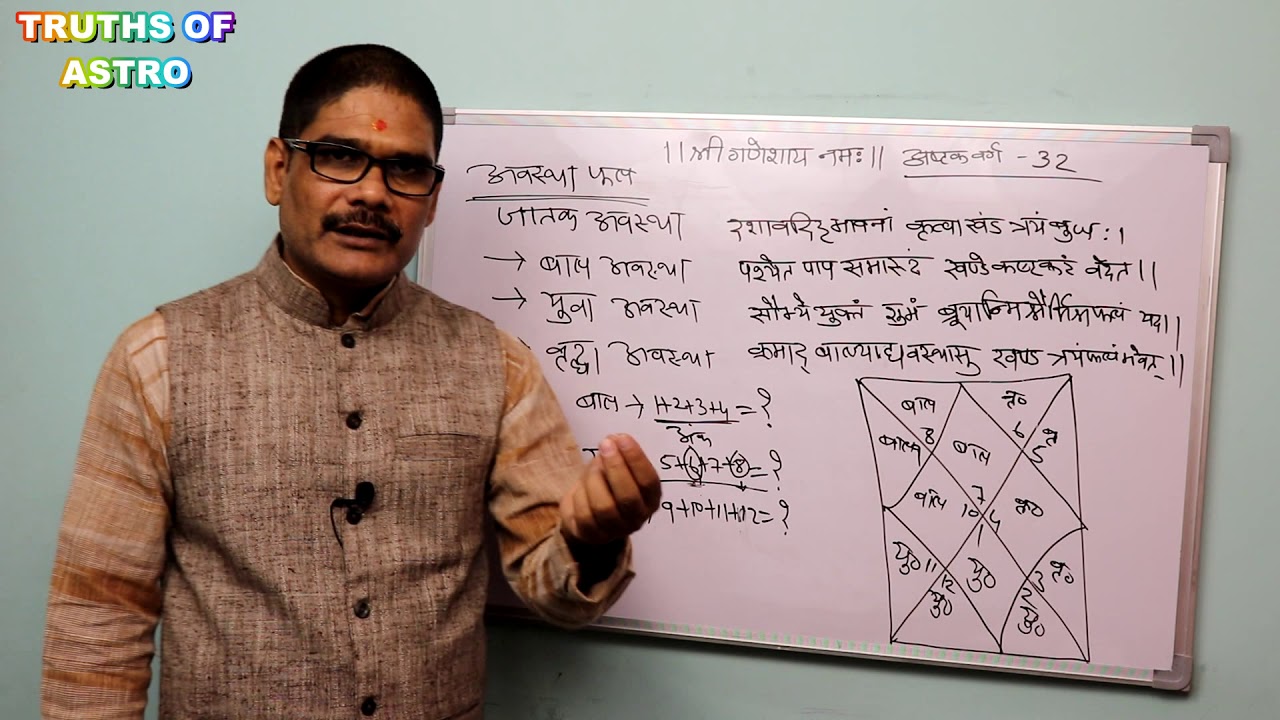 TRUTHS OF
ASTRO
।।श्री गणेशाय नमः।। अष्टकवर्ग - 32
अवस्था फल
जातक अवस्था
कृत्वा खंड त्रयं बुधः।
→ बाल अवस्था
पश्येत पाप समारूढं खण्डे कष्टकरं वदेत।।
→ युवा अवस्था
सौम्ये युक्तं शुभं ब्रूयान्मिश्रैर्मिश्रफलं यदा।।
वृद्धा अवस्था
क्रमाद् बाल्याद्यवस्थासु खण्ड त्रयंफलंभवेत्।।
बाल → 1+2+3+4=?
अंक
5+6+7+8=?
9+10+11+12=?
बाल
वृ०
बाल 8
बाल
6 वृ
5
बाल 10
7
4 वृ०
1
यु० 11
यु०
वृ०
12
यु०
3
2
यु०